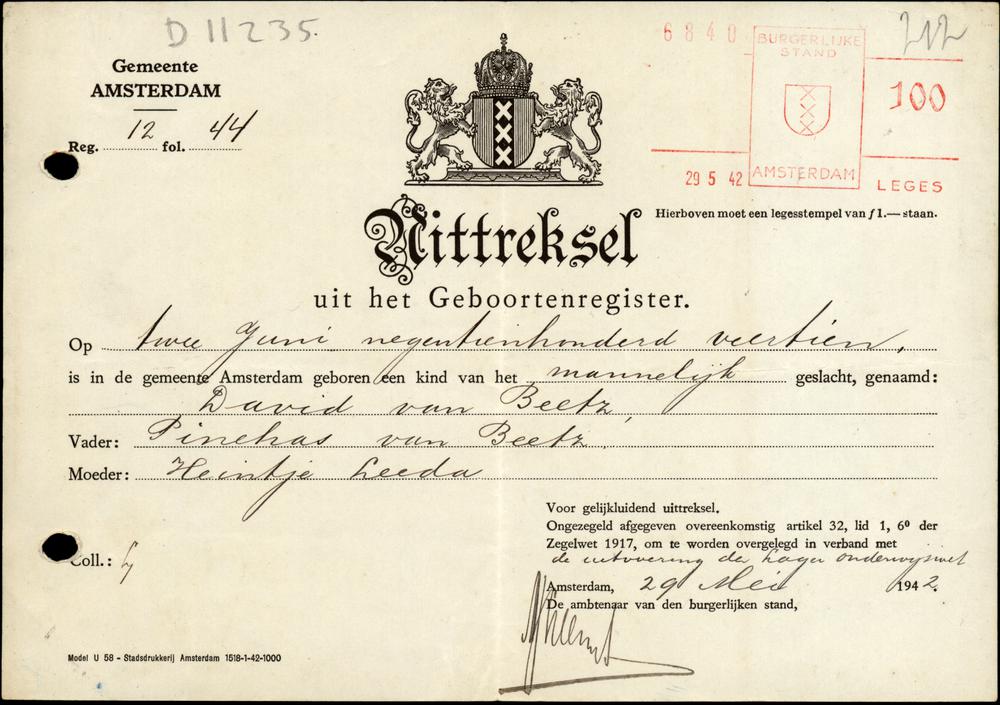 D 11235.
212
Gemeente
AMSTERDAM
Reg. 12 fol. 44
6840
BURGERLIJKE
STAND
100
29 5 42
AMSTERDAM
LEGES
Hierboven moet een legesstempel van ƒ 1.— staan.
Uittreksel
uit het Geboortenregister.
Op twee Juni negentienhonderd veertien,
is in de gemeente Amsterdam geboren een kind van het mannelijk geslacht, genaamd:
David van Beetz,
Vader: Pinehas van Beetz,
Moeder: Heintje Leeda
Voor gelijkluidend uittreksel.
Ongezegeld afgegeven overeenkomstig artikel 32, lid 1, 6⁰ der
Zegelwet 1917, om te worden overgelegd in verband met
de uitvoering der Lager onderwijswet
Coll.:
Amsterdam, 29 Mei 1942.
De ambtenaar van den burgerlijken stand,
Model U 58 - Stadsdrukkerij Amsterdam 1518-1-42-1000